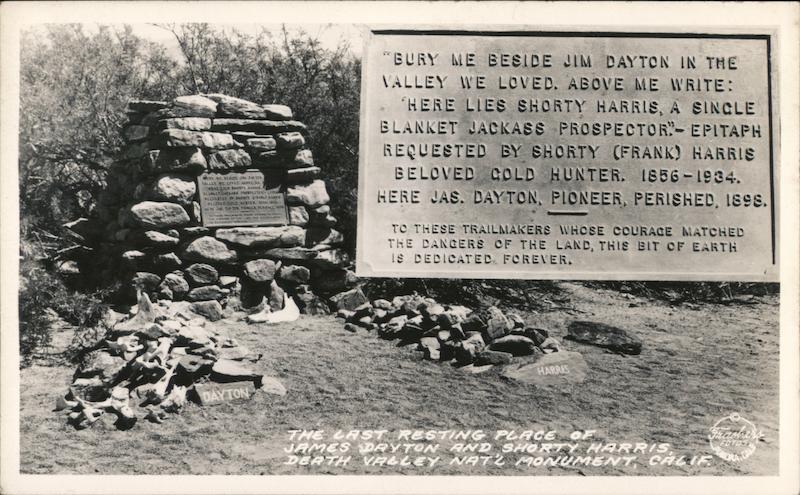 "BURY ME BESIDE JIM DAYTON IN THE
VALLEY WE LOVED. ABOVE ME WRITE:
'HERE LIES SHORTY HARRIS, A SINGLE
BLANKET JACKASS PROSPECTOR".- EPITAPH
REQUESTED BY SHORTY (FRANK) HARRIS
BELOVED GOLD HUNTER. 1856-1934.
HERE JAS. DAYTON, PIONEER, PERISHED, 1898.
TO THESE TRAILMAKERS WHOSE COURAGE MATCHED
THE DANGERS OF THE LAND, THIS BIT OF EARTH
IS DEDICATED FOREVER.
DAYTON
HARRIS
THE LAST RESTING PLACE OF
JAMES DAYTON AND SHORTY HARRIS,
DEATH VALLEY NAT'L MONUMENT, CALIF.
Frashers
FOTOS
POMONA, CALIF.